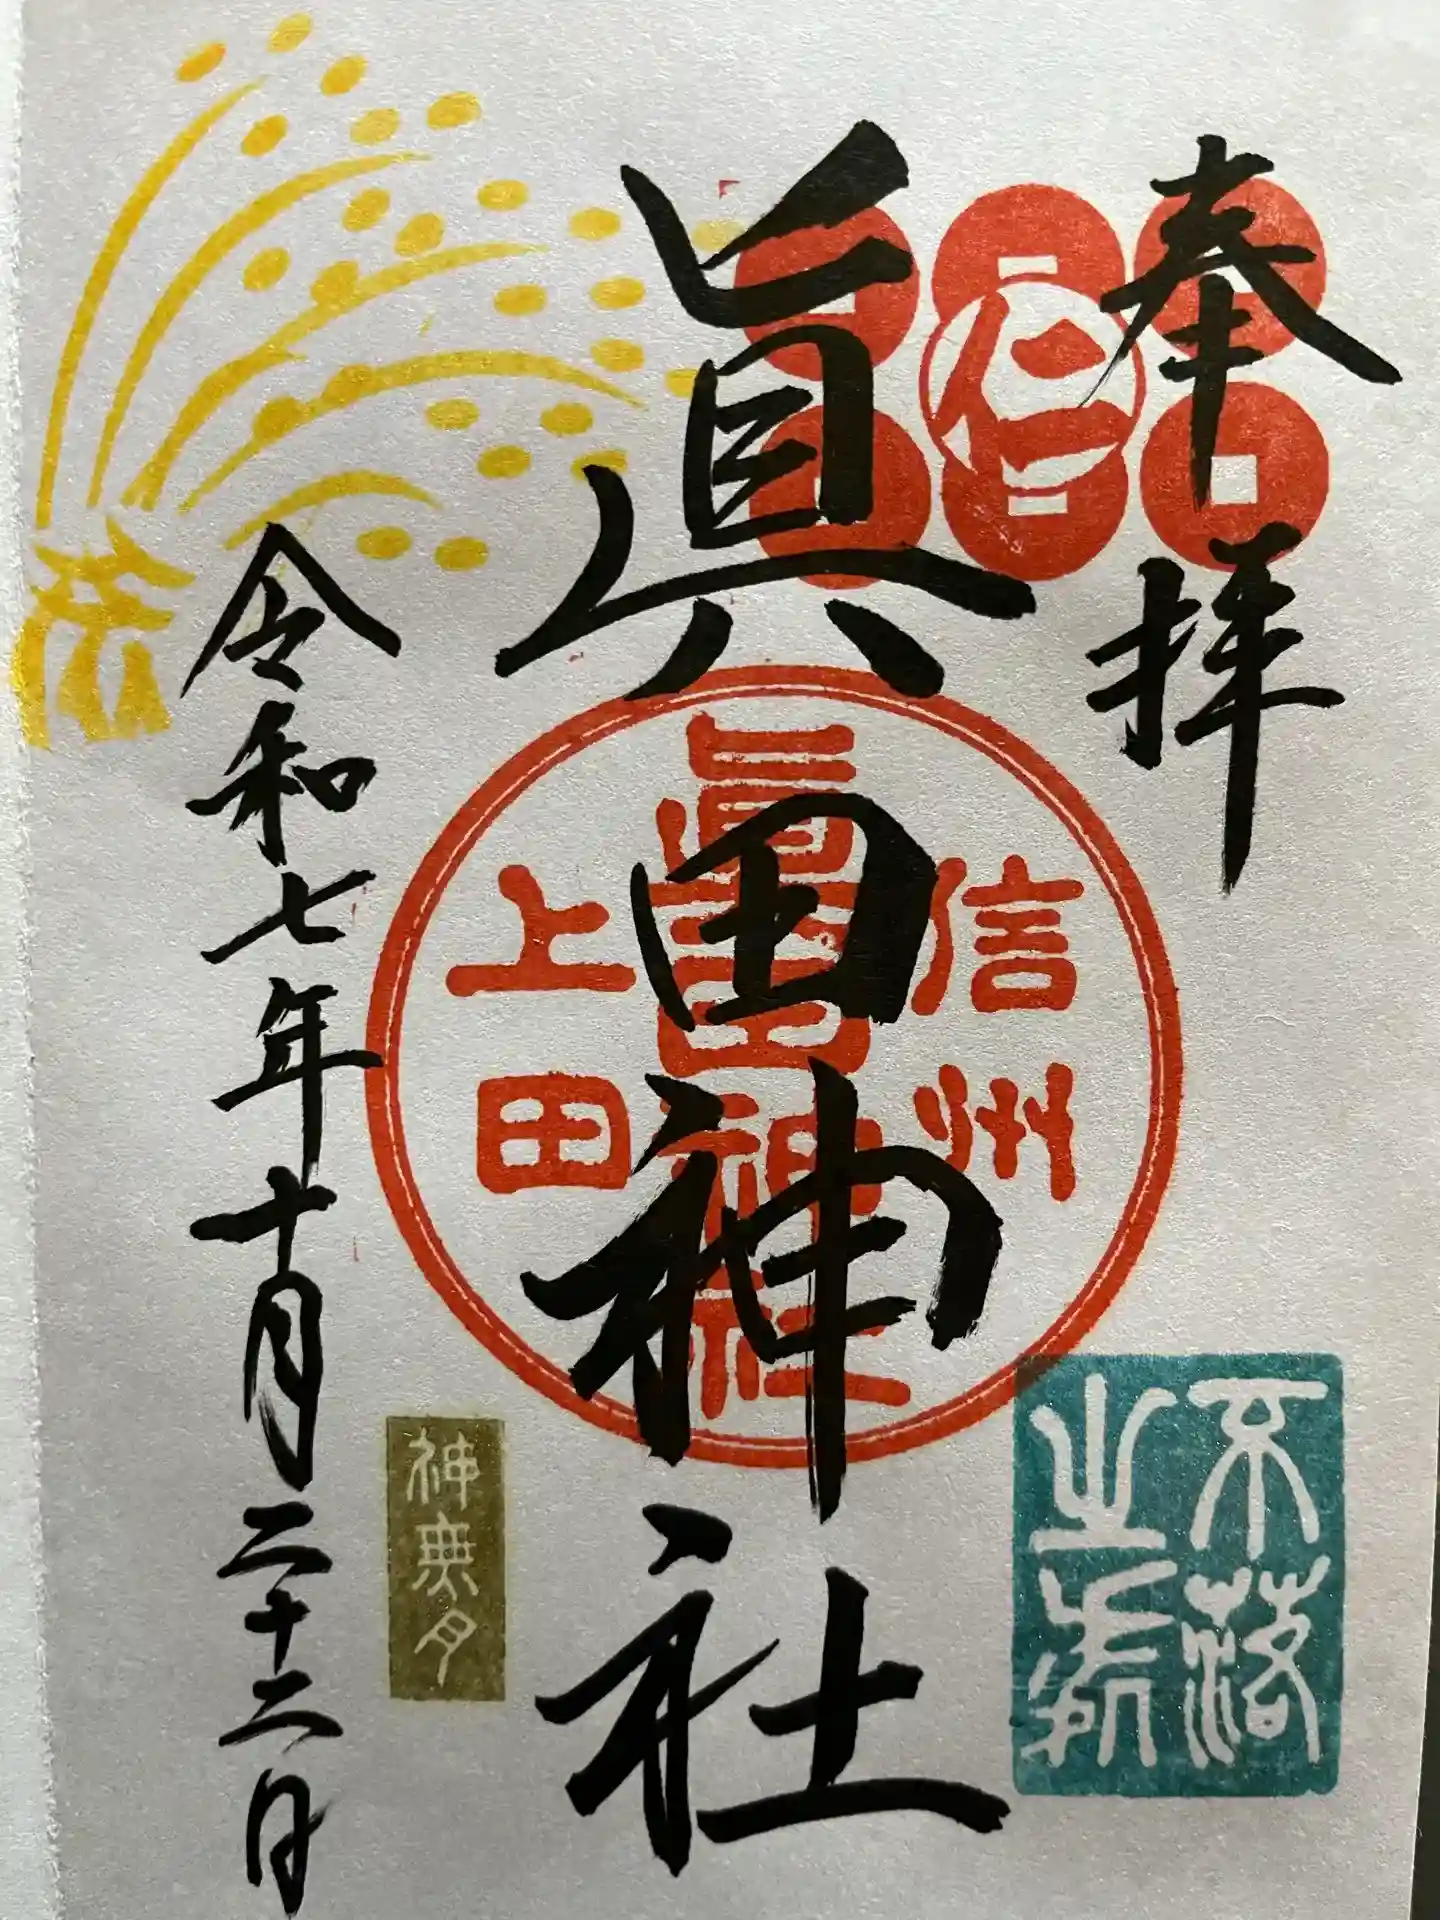 奉拝
仁
眞田神社
信州
眞田神社
上田
不落
之
神無月
令和七年十月二十二日